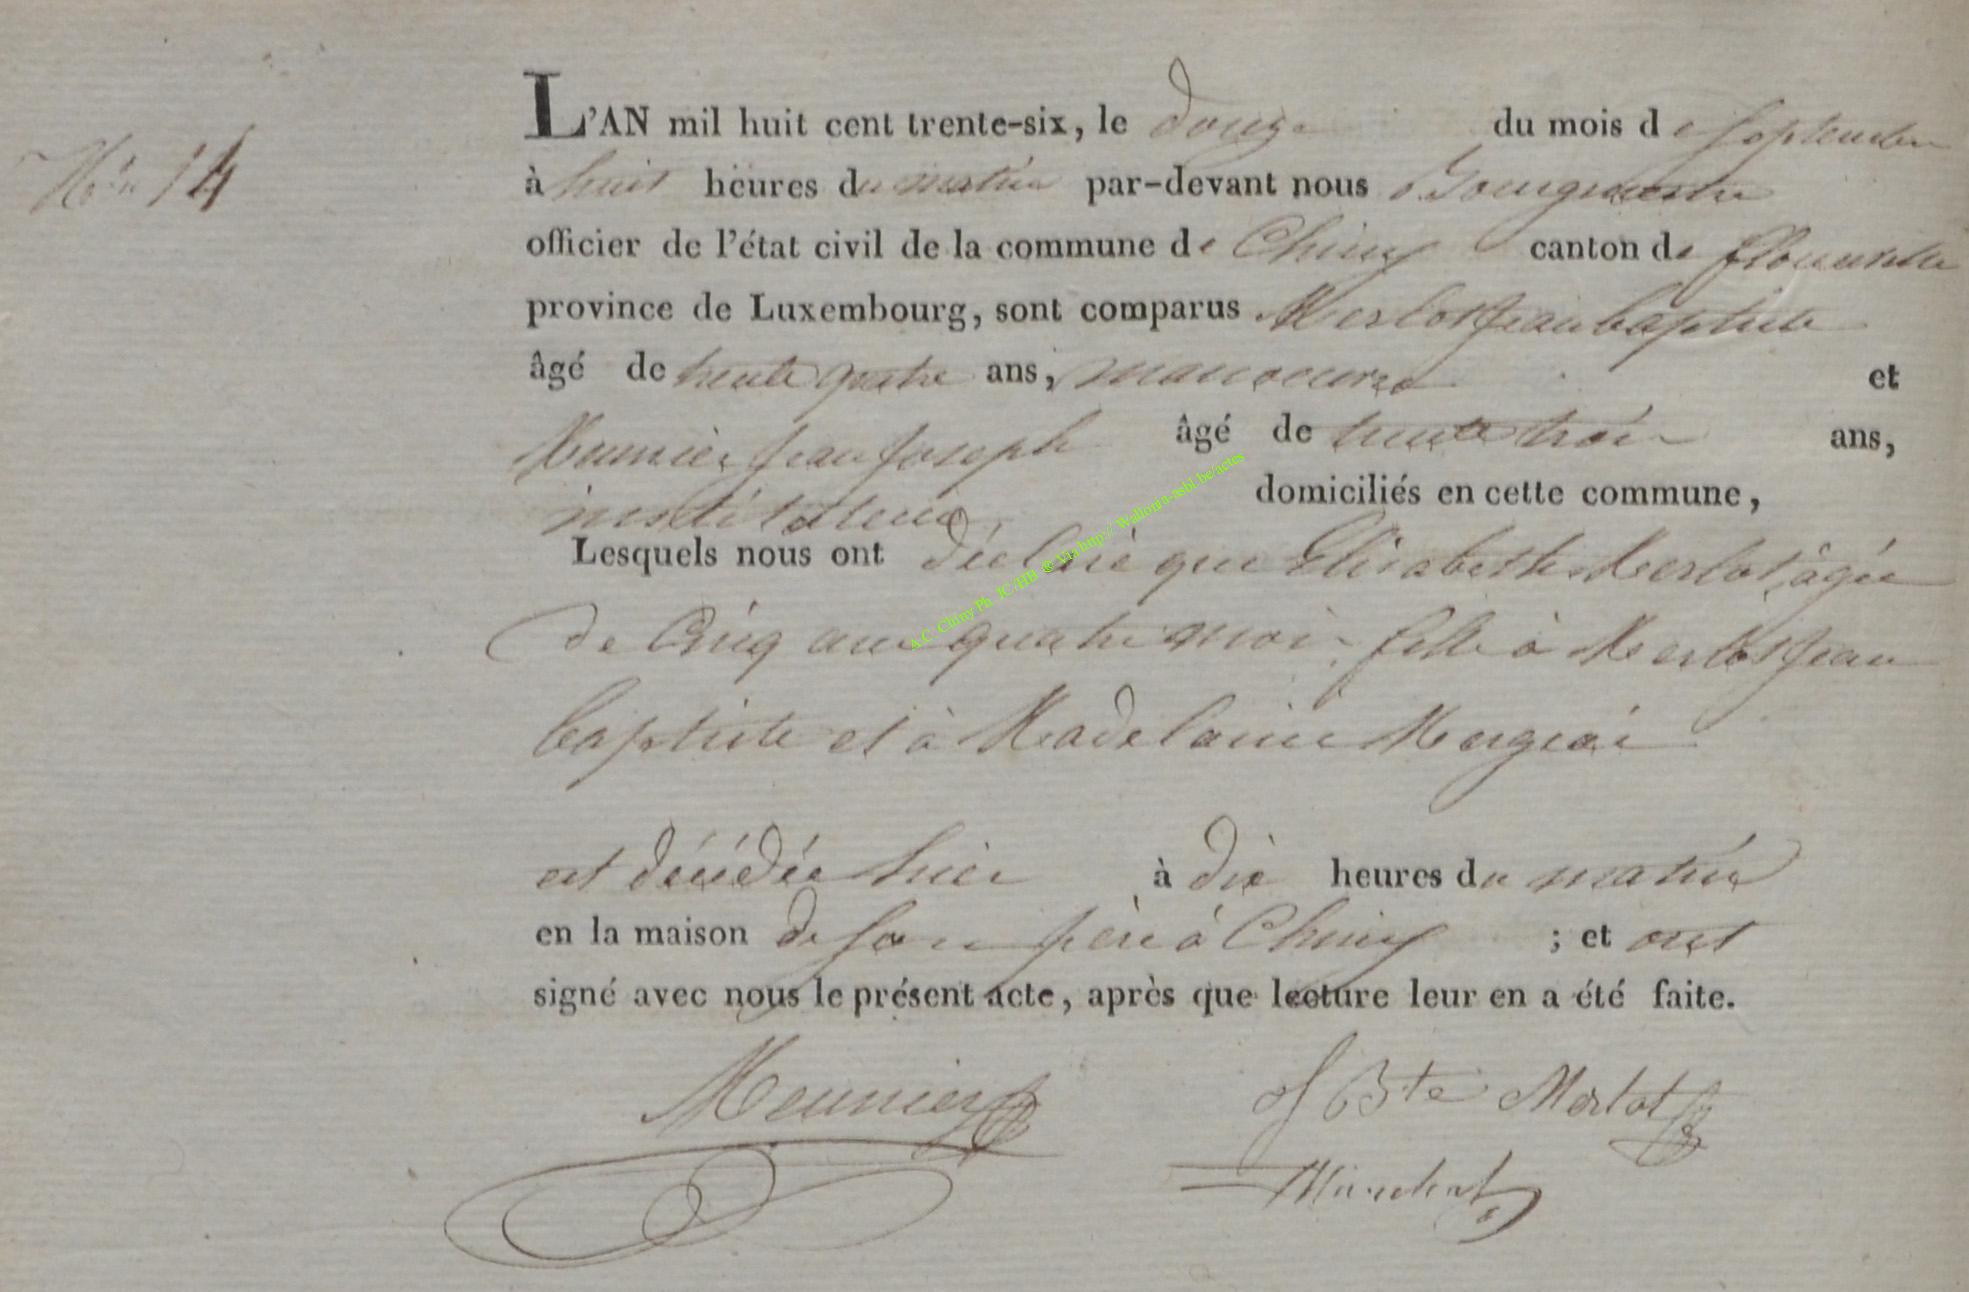 N.o 14
L'AN mil huit cent trente-six, le douze du mois de Septembre
à huit heures du matin par-devant nous Bourgmestre
officier de l'état civil de la commune de Chiny canton de florenville
province de Luxembourg, sont comparus Merlot Jean baptiste
âgé de trente quatre ans, manoeuvre et
Meunier Jean Joseph âgé de trente trois ans,
instituteur domiciliés en cette commune,
Lesquels nous ont déclaré que Elisabeth Merlot, âgée
de Cinq ans quatre mois, fille à Merlot Jean
baptiste et à Madelaine Mergeai
est décédée hier à dix heures du matin
en la maison de son père à Chiny ; et ont
signé avec nous le présent acte, après que lecture leur en a été faite.
Meunier J Bte Merlot
A.C. Chiny Ph. JC/HB @ Via http:// Wallonia-asbl.be/actes